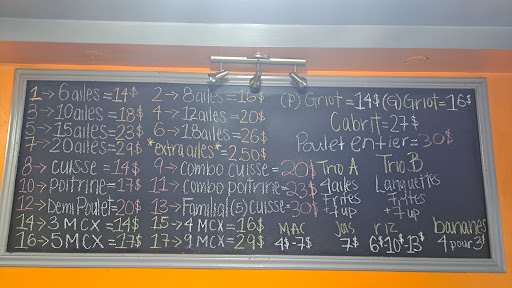 1→6 ailes=14$
2→8 ailes=16$
3→10 ailes=18$
4→12 ailes=20$
5→15 ailes=23$
6→18 ailes=26$
7→20 ailes=29$
*extra ailes*=2.50$
8→cuisse=14$
9→combo cuisse=20$
10→Poitrine=17$
11→combo poitrine=23$
12→Demi Poulet=20$
13→Familial(5)cuisse=30$
14→3 MCX=14$
15→4 MCX=16$
16→5 MCX=17$
17→9 MCX=29$
(P) Griot=14$ (G) Griot=16$
Cabrit=27$
Poulet entier=30$
Trio A
4 ailes
Frites
+7up
Trio B
Languettes
Frites
+7up
MAC
4$-7$
jus
7$
riz
6$10$-13$
bananes
4 pour 3$